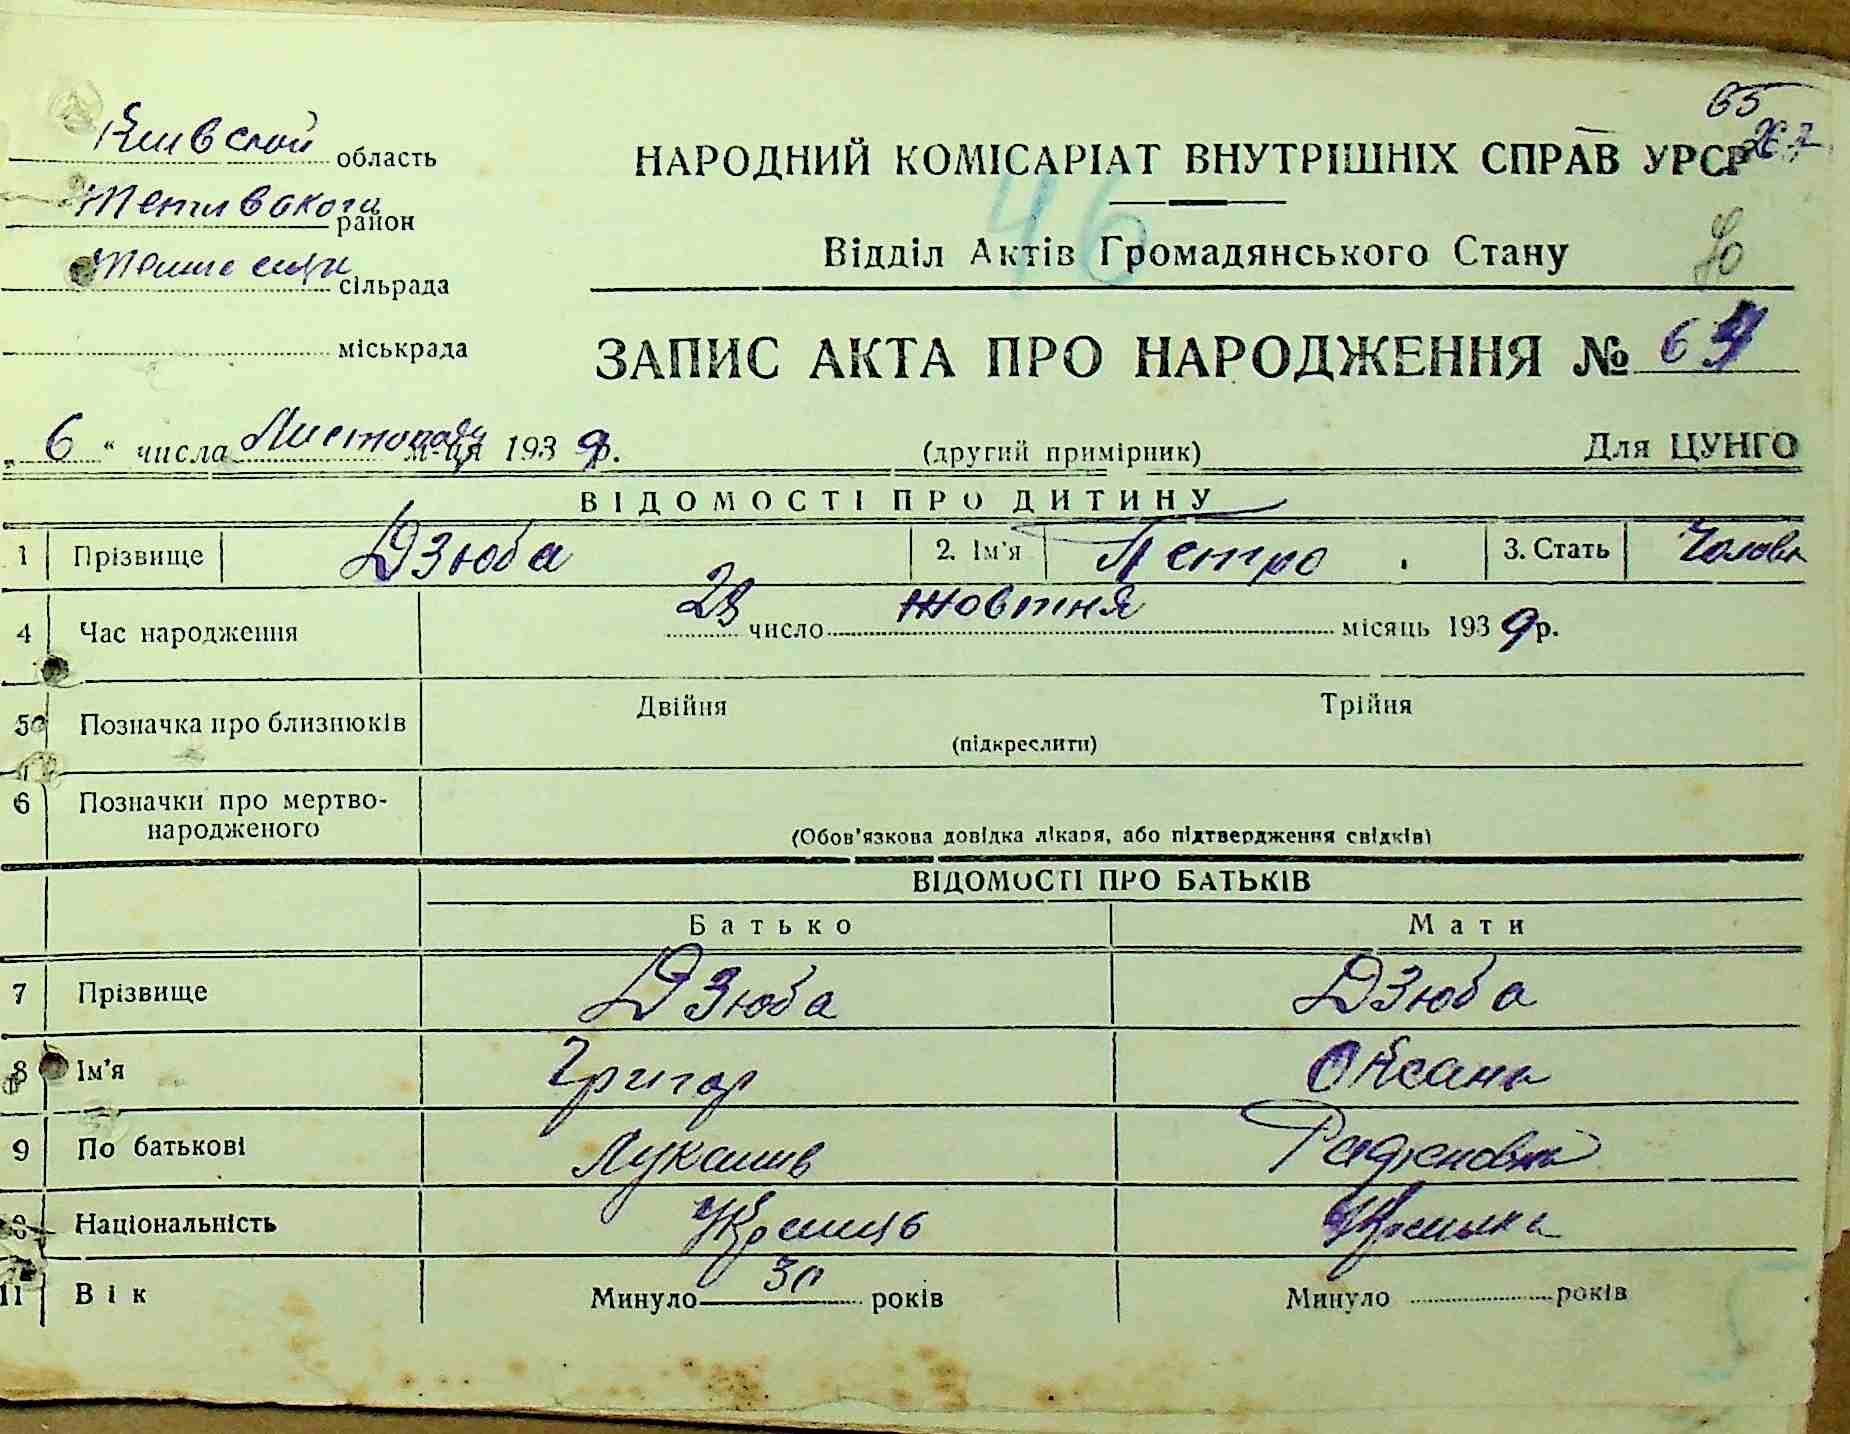 65
Київской область
НАРОДНИЙ КОМІСАРІАТ ВНУТРІШНІХ СПРАВ УРСР
Тетивского район
46
Відділ Актів Громадянського Стану
сільрада
міськрада
ЗАПИС АКТА ПРО НАРОДЖЕННЯ № 64
„ 6 “ числа Листопада м-ця 1939 р.
(другий примірник)
Для ЦУНГО
ВІДОМОСТІ ПРО ДИТИНУ
1 Прізвище Дзюба 2. Ім'я Петро . 3. Стать Чолов
4 Час народження 28 число жовтня місяць 1939 р.
5 Позначка про близнюків Двійня Трійня
(підкреслити)
6 Позначки про мертво-
народженого
(Обов'язкова довідка лікаря, або підтвердження свідків)
ВІДОМОСТІ ПРО БАТЬКІВ
Батько Мати
7 Прізвище Дзюба Дзюба
8 Ім'я Григор Оксана
9 По батькові Лукашив Радионовна
Національність Украинць Украинка
11 Вік Минуло 30 років Минуло років